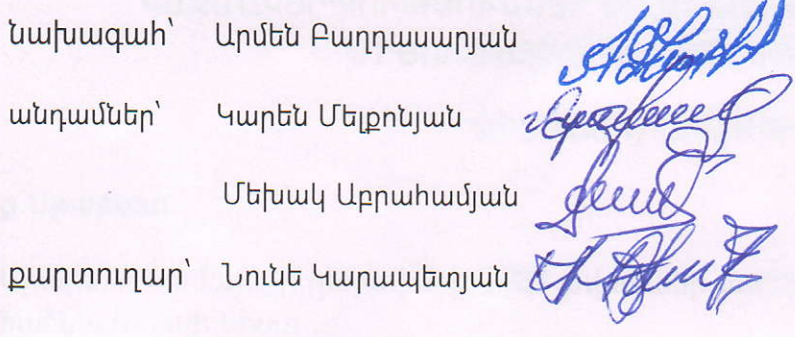 նախագահ՝ Արմեն Բաղդասարյան
անդամներ՝ Կարեն Մելքոնյան
Մեխակ Աբրահամյան
քարտուղար՝ Նունե Կարապետյան